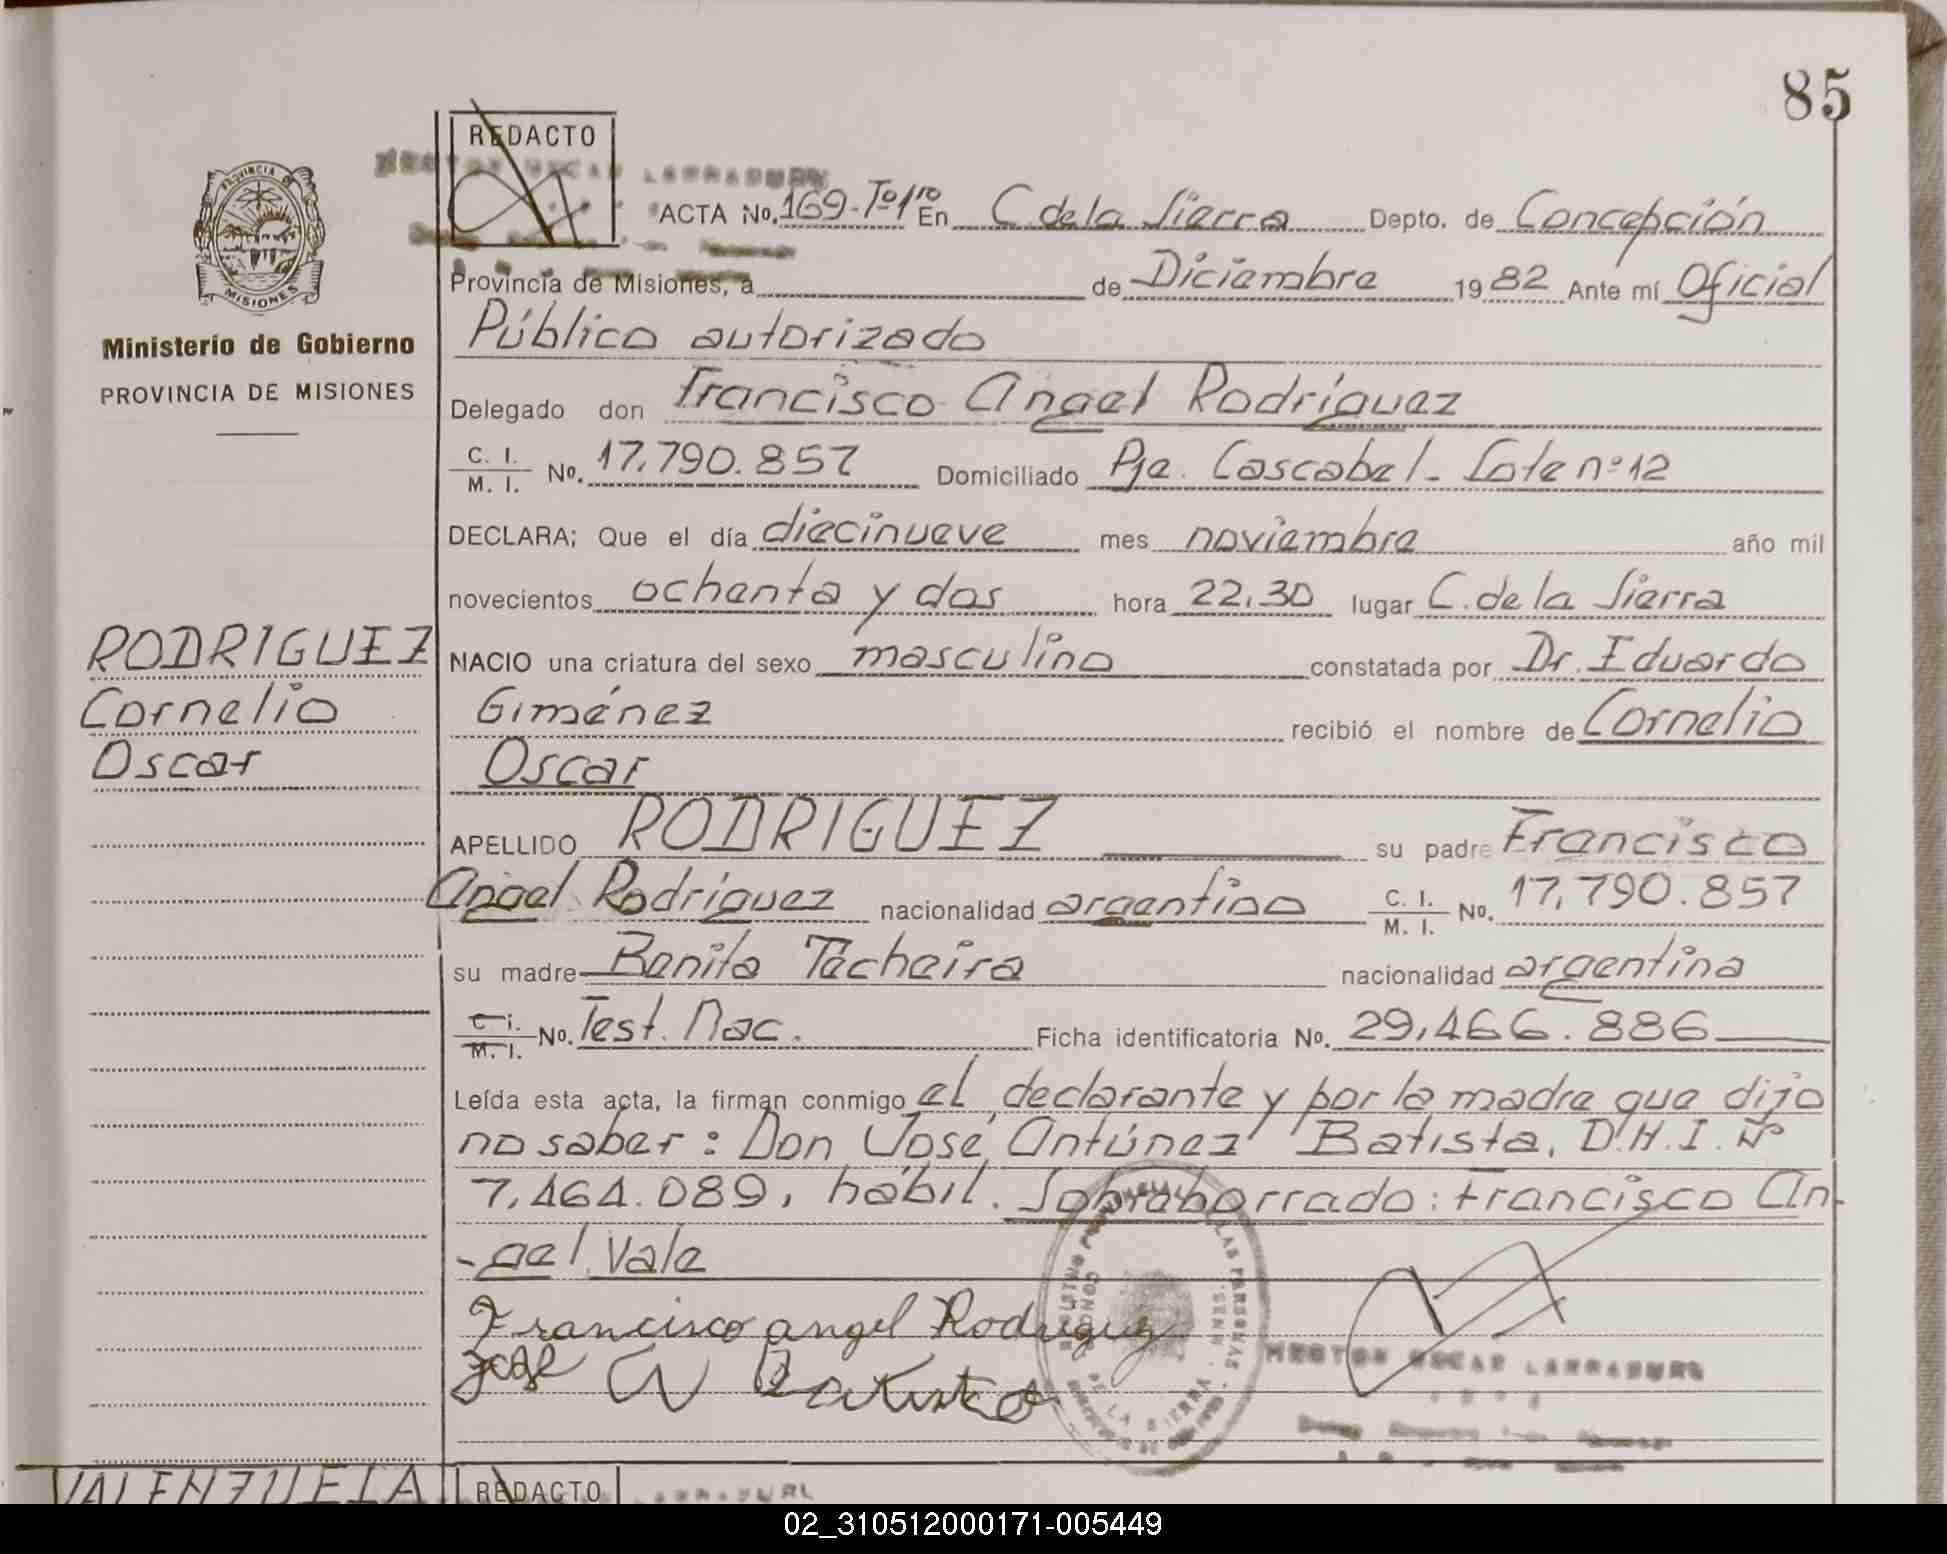 85
PROVINCIA DE
MISIONES
Ministerio de Gobierno
PROVINCIA DE MISIONES
RODRIGUEZ
Cornelio
Oscar
REDACTO
ACTA No. 169-Tº1ro En C. de la Sierra Depto. de Concepción
Provincia de Misiones, a de Diciembre 1982 Ante mí Oficial
Público autorizado
Delegado don Francisco Angel Rodríguez
C. I. M. I. No. 17.790.857 Domiciliado Pje. Cascabel - Lote nº 12
DECLARA; Que el día diecinueve mes noviembre año mil
novecientos ochenta y dos hora 22,30 lugar C. de la Sierra
NACIO una criatura del sexo masculino constatada por Dr. Eduardo
Giménez recibió el nombre de Cornelio
Oscar
APELLIDO RODRIGUEZ su padre Francisco
Angel Rodríguez nacionalidad argentino C. I. M. I. No. 17.790.857
su madre Benita Techeira nacionalidad argentina
C. I. M. I. No. Test. Nac. Ficha identificatoria No. 29,466.886
Leída esta acta, la firman conmigo el declarante y por la madre que dijo
no saber: Don José Antúnez Batista, D.N.I. Nº
7,464.089, hábil. Sobreborrado: Francisco An-
-gel. Vale
Francisco angel Rodriguez
José A Batista
HECTOR OSCAR LARRABURU
VALENZUELA
REDACTO
02_310512000171-005449